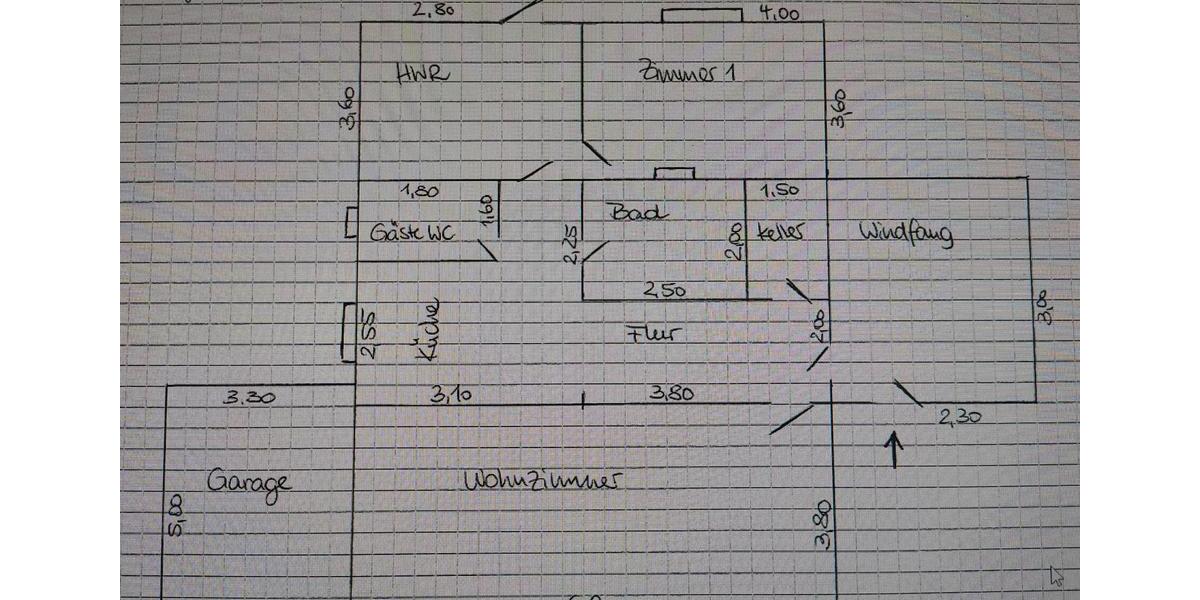 2,80
4,00
HWR
Zimmer 1
3,60
3,60
1,80
1,60
1,50
Gäste WC
2,25
Bad
2,80
Keller
Windfang
2,50
2,55
Küche
Flur
2,00
3,00
3.30
3,10
3,80
2,30
Garage
Wohnzimmer
5,80
3,80